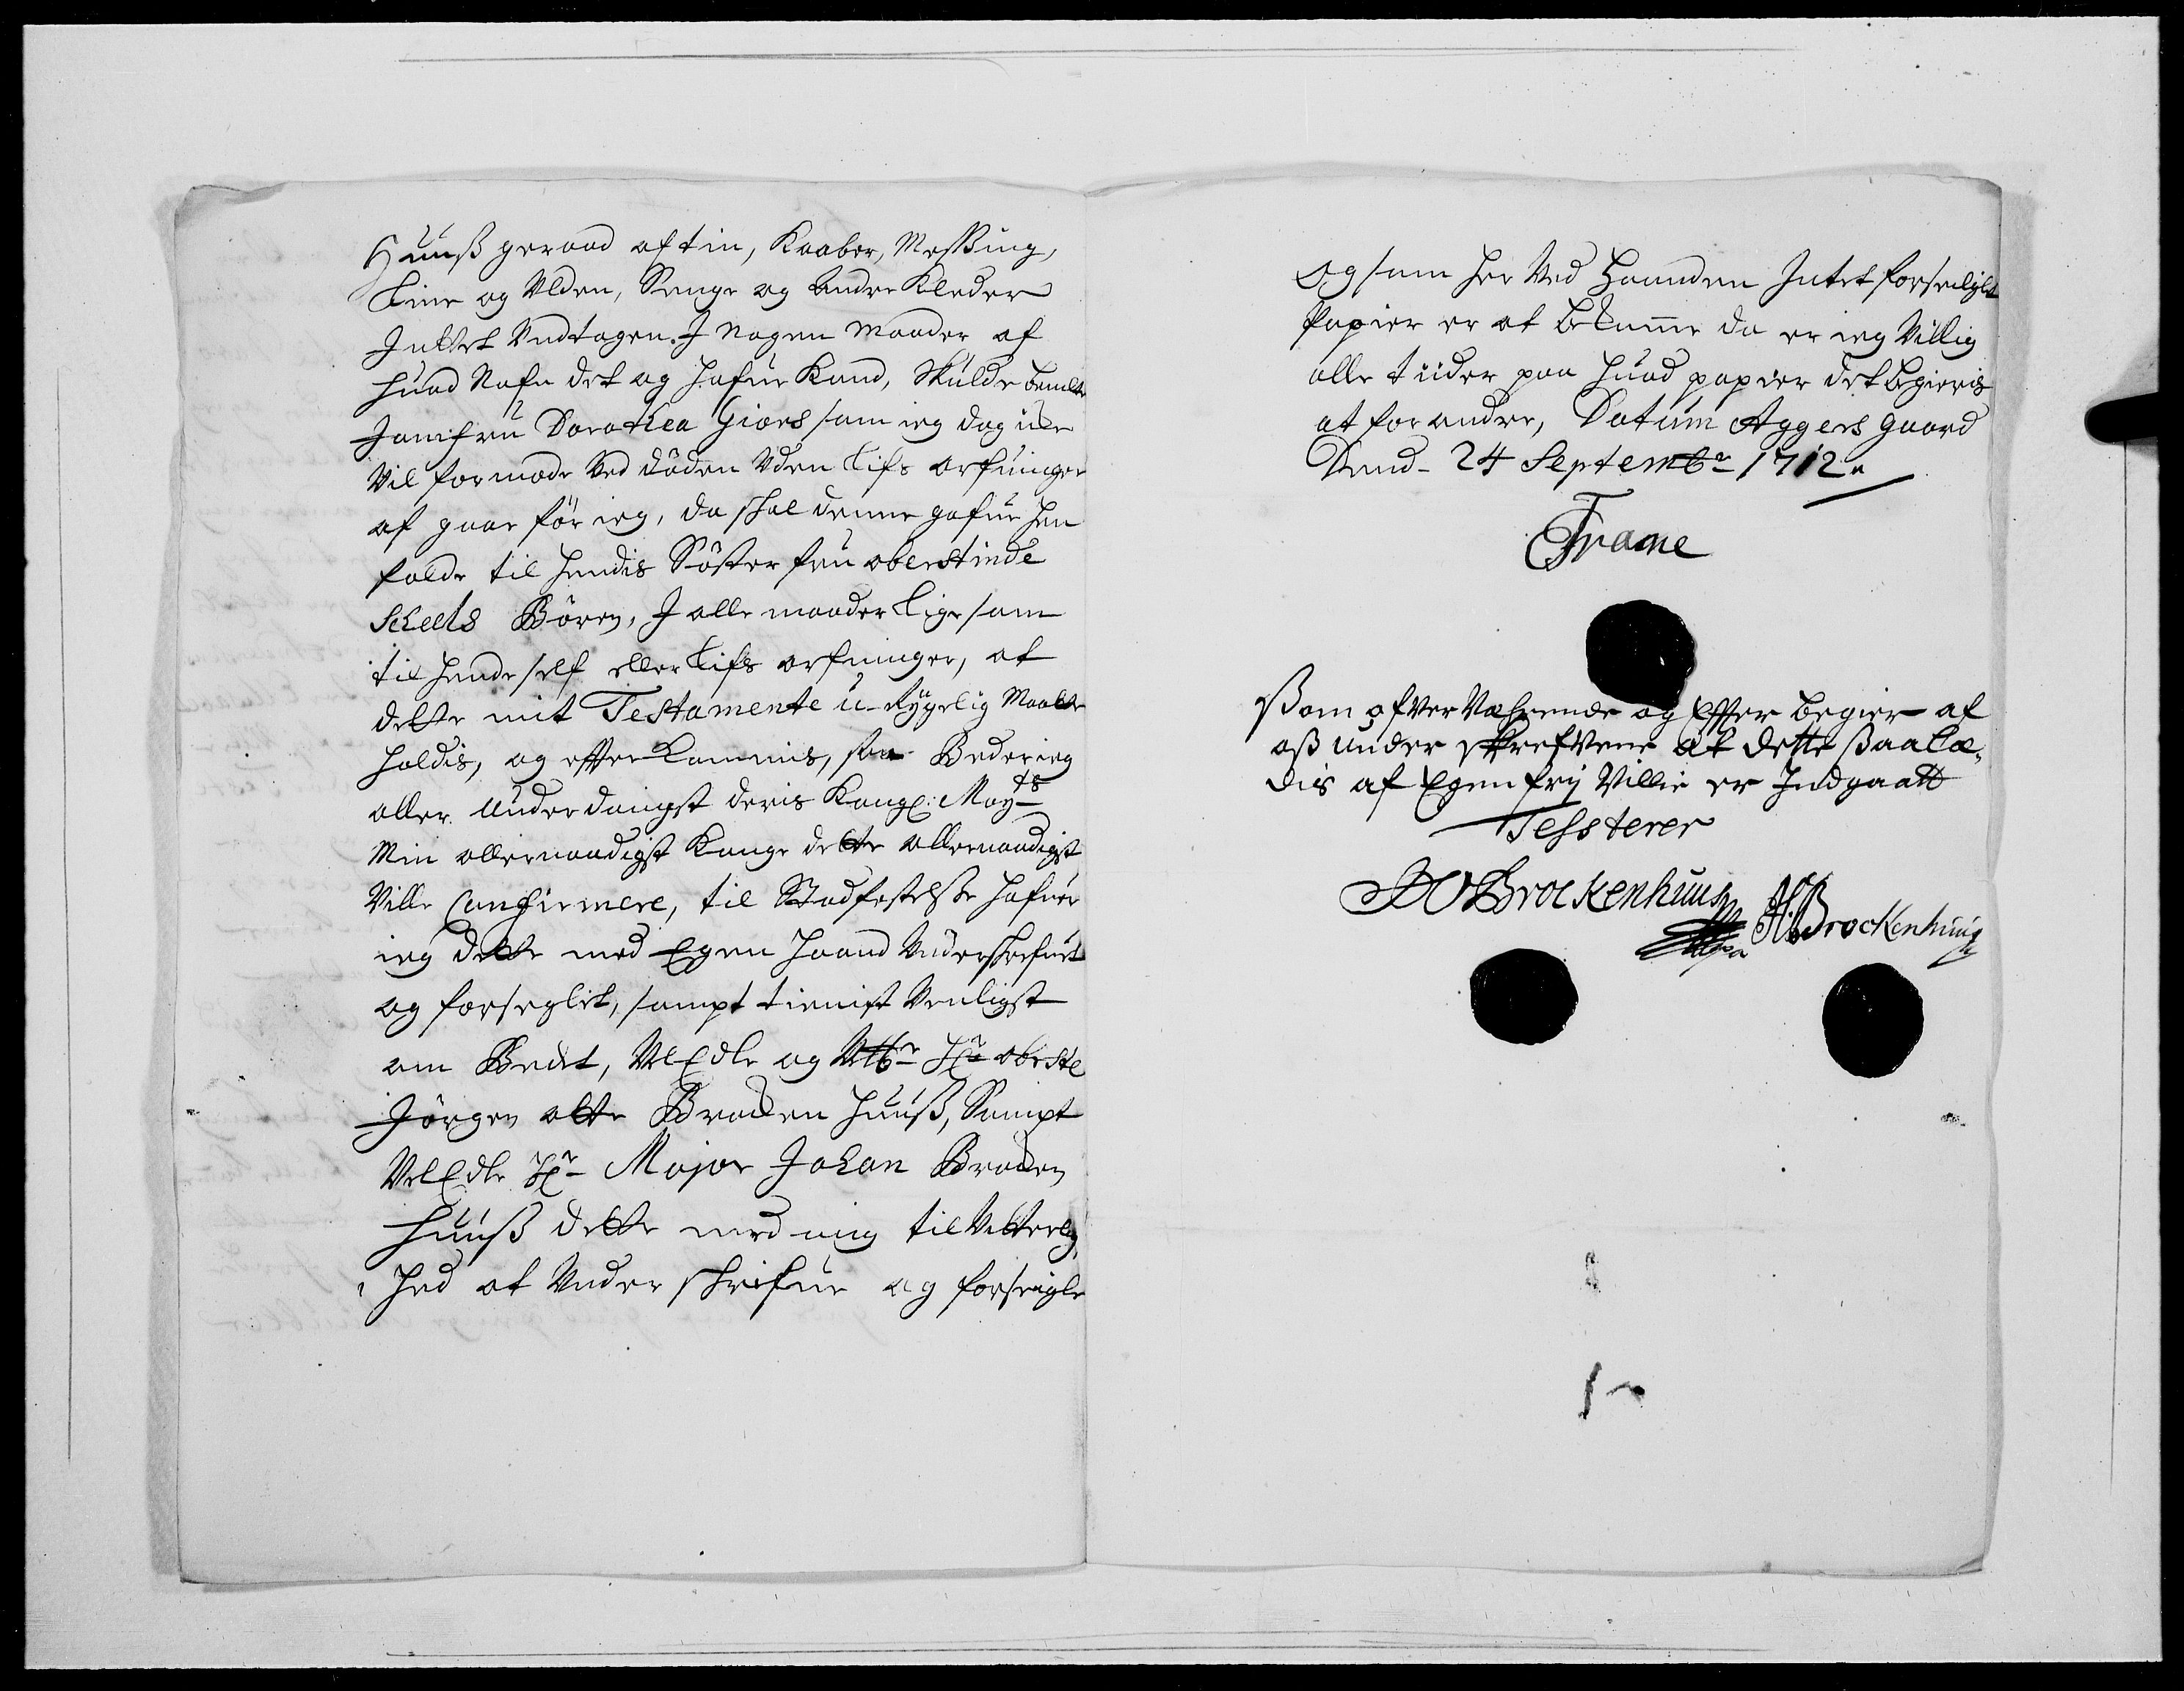 Huuß geraad af tin, Kaaber, Messing,
Line og Ulden, Senge og andre Kleder
Inttet Undtagen. I Nogen Maader af
huad Nafn det og hafue Kand, Skulde bemte
Jomfru Dorothea Giøes som ieg dog icke
Vil formode Ved døden Uden Lifs arfuinger
af gaae før ieg, da skal denne gafue hen
falde til hendis Søster fru oberstinde
Scheels Børen, I alle maader lige som
til hende self eller Lifs arfuinger, at
dette mit Testamente u-rygelig Maatte
holdis, og effterkommis, saa Beder ieg
aller underdanigst deris Kongl: Mayts
Min allernaadigst Konge dette allernaadigst
Ville Confirmere, til Stadfestelsse hafuer
ieg dette med Egen Haand Underskrefuet
og forseglet, sampt tienist Venligst
om Bedet, VelEdle og Velbr Hr oberste
Jørgen otte Brocken huuß, Sampt
VelEdle Hr Major Johan Brocken
huuß dette med mig til Vitterlig,
hed at Under skrifue og forseigle
og som her Ved Haanden Intet forseiglet
Papier er at bekomme da er ieg Villig
alle tider paa huad papier det begieris
at forandre, Datum Aggers gaard
Dend 24 Septembr 1712
Trane
ßom ofver Værende og Effter begier af
oß under skrefvene at dette ßaalæ,
dis af Egen frij Villie er Indgaatt
Tessterer
JOBrockenhuus
HBrockenhuus